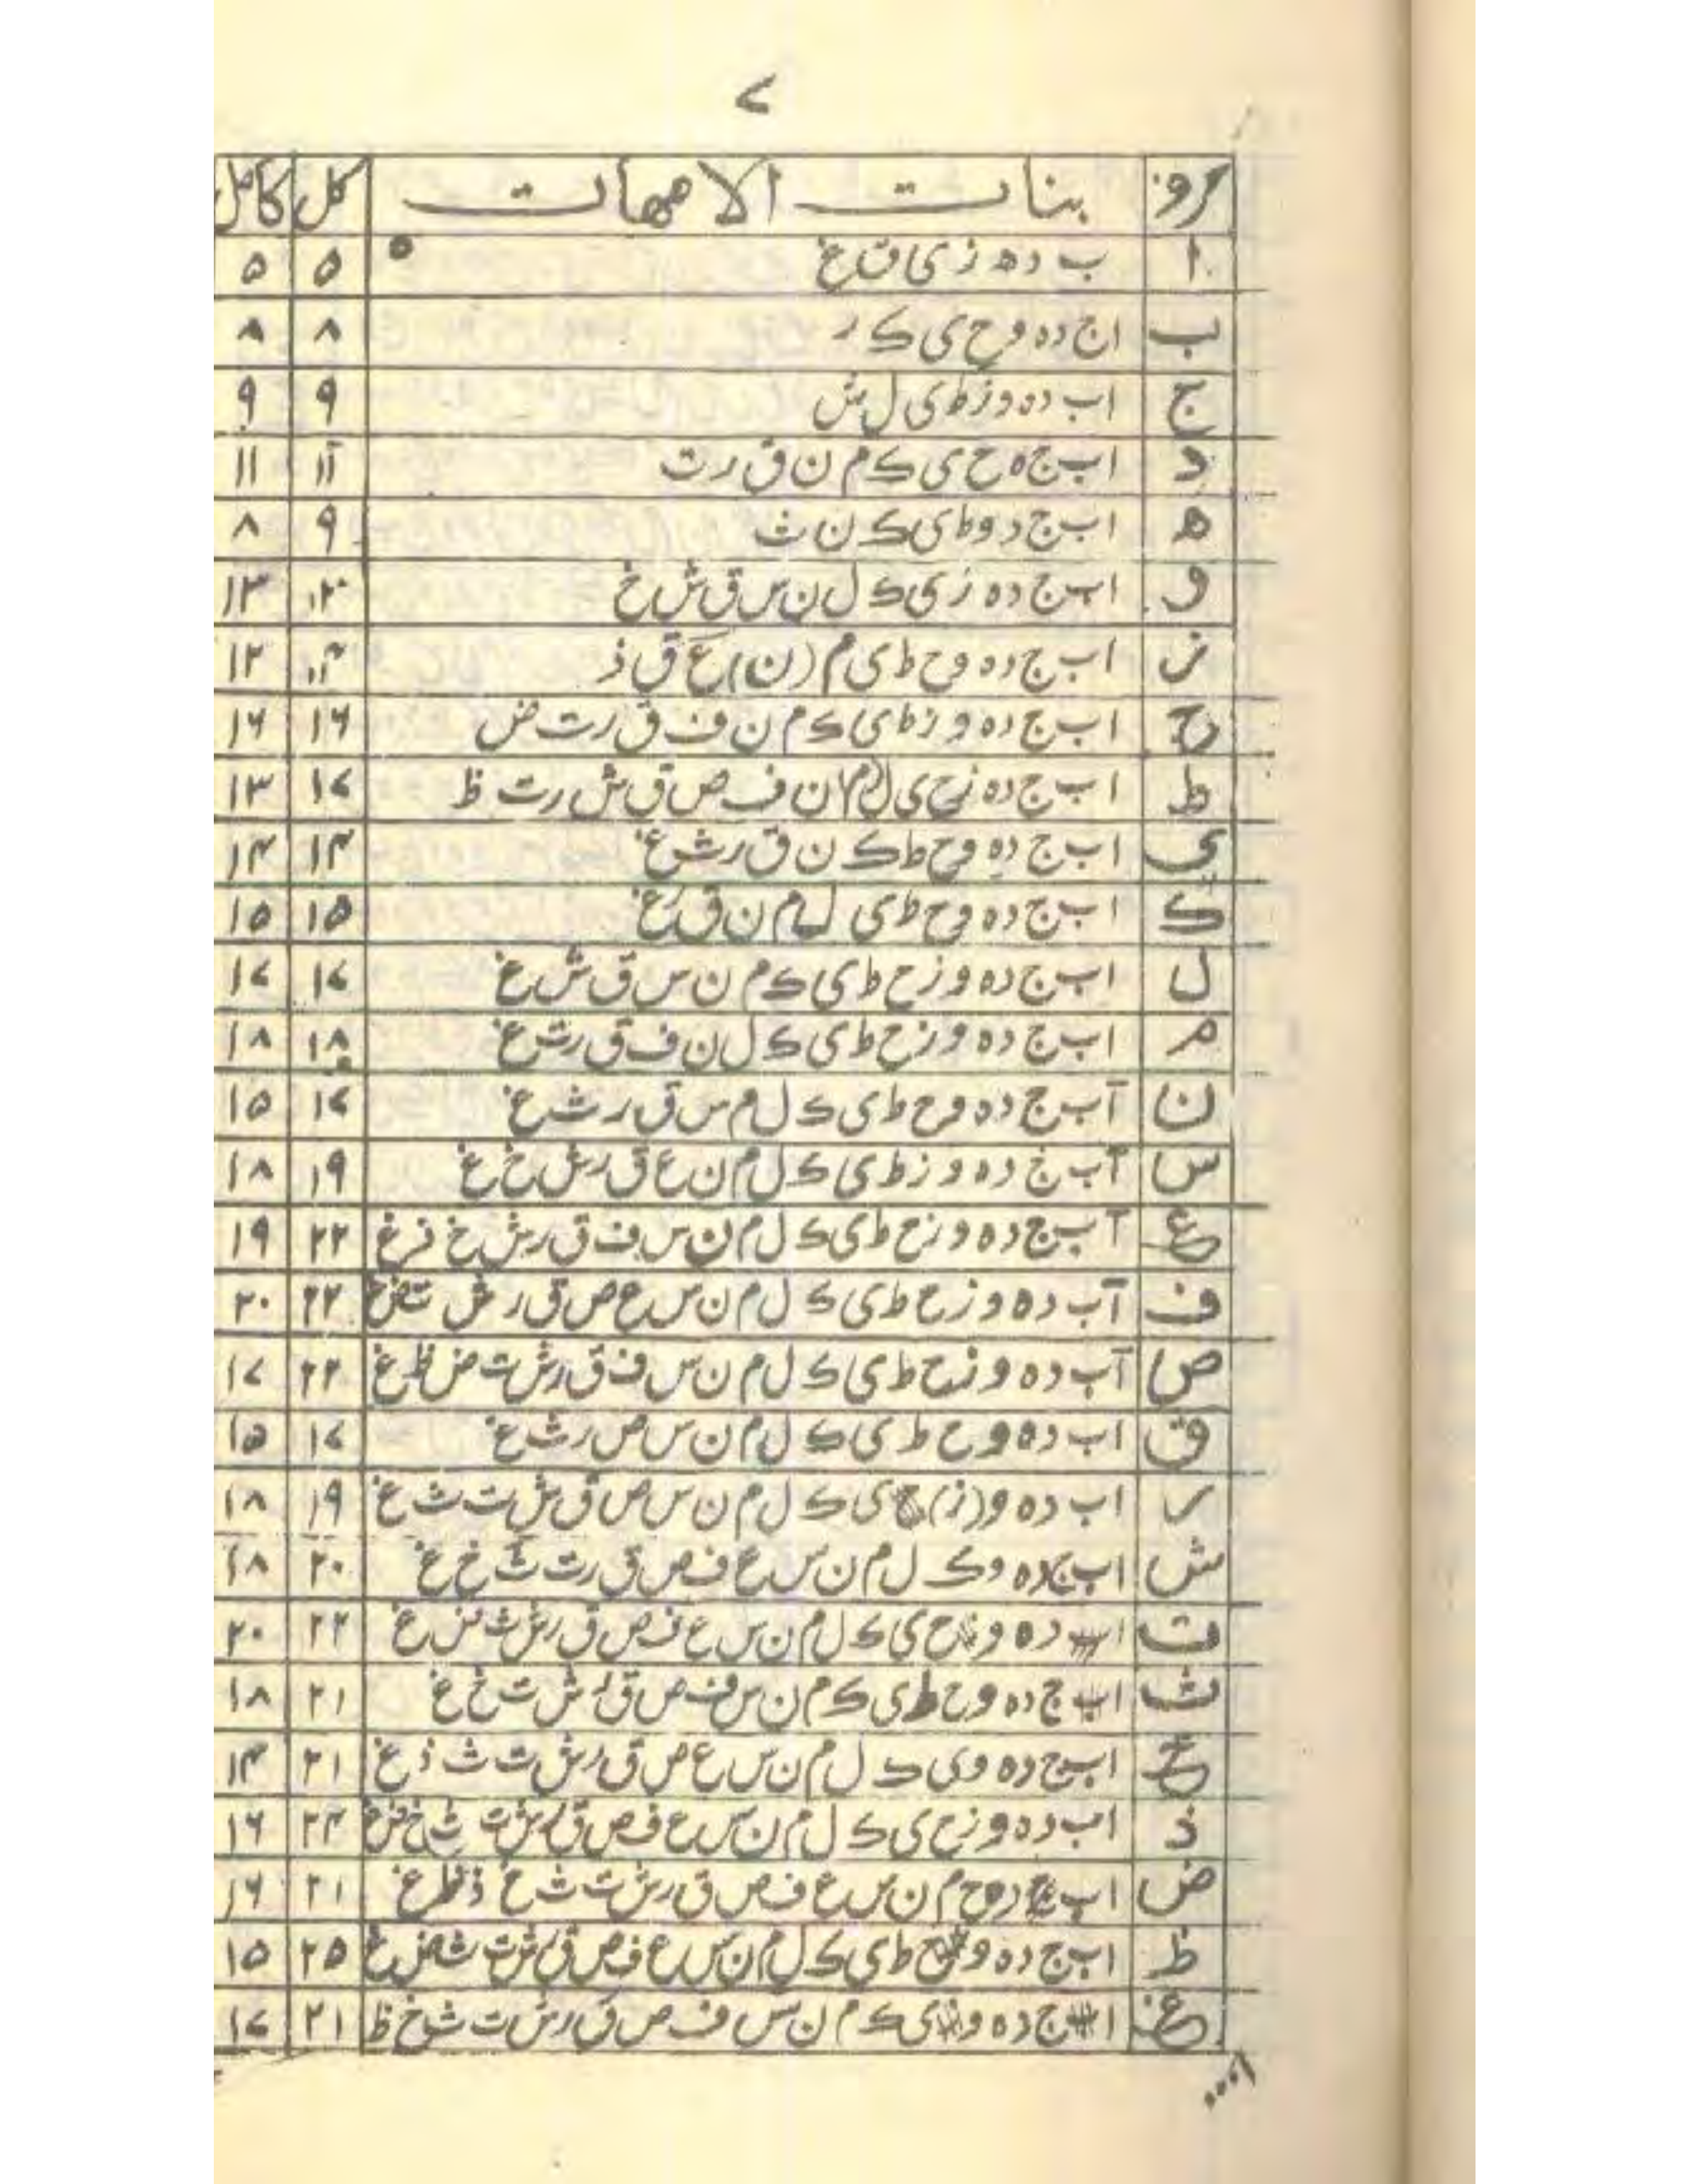 ٧
حروف بنات الامهات كل كامل
ا ب د ه ز ی ق غ ۵ ۵
ب ا ج د ه و ح ی ک ر ۸ ۸
ج ا ب د ه و ز ط ی ل ش ۹ ۹
د ا ب ج ه ح ی ک م ن ق ر ت ۱۲ ۱۱
ه ا ب ج د و ط ی ک ن ث ۹ ۸
و ا ب ج د ه ز ی ک ل ن س ق ش خ ۱۳
ز ا ب ج د ه و ح ط ی م (ن) ع ق ذ ۱۲
ح ا ب ج د ه و ز ط ی ک م ن ف ق ر ت ض ۱۶ ۱۶
ط ا ب ج د ه ز ح ی ل م ن ف ص ق ش ر ت ظ ۱۷ ۱۳
ی ا ب ج د ه و ح ط ک ن ق ر ش غ ۱۴ ۱۴
ک ا ب ج د ه و ح ط ی ل م ن ق غ ۱۵ ۱۵
ل ا ب ج د ه و ز ح ط ی ک م ن س ق ش غ ۱۷ ۱۷
م ا ب ج د ه و ز ح ط ی ک ل ن ف ق ر ت غ ۱۸ ۱۸
ن ا ب ج د ه و ح ط ی ک ل م س ق ر ث غ ۱۷ ۱۵
س ا ب ج د ه و ز ط ی ک ل م ن ع ق ر ش خ غ ۱۹ ۱۸
ع ا ب ج د ه و ز ح ط ی ک ل م ن س ف ق ر ش خ ذ غ ۲۲ ۱۹
ف آ ب د ه و ز ح ط ی ک ل م ن س ع ص ق ر ش ت ض غ ۲۲ ۲۰
ص آ ب د ه و ز ح ط ی ک ل م ن س ف ق ر ش ت ض ظ غ ۲۲ ۱۷
ق ا ب د ه و ح ط ی ک ل م ن س ص ر ث غ ۱۷ ۱۵
ر ا ب د ه و (ز) ح ی ک ل م ن س ص ق ش ت ث غ ۱۹ ۱۸
ش ا ب ج د ه و ک ل م ن س ع ف ص ق ر ت ث خ غ ۲۰ ۱۸
ت ا د ه و ح ی ک ل م ن س ع ف ص ق ر ش ث ض غ ۲۲ ۲۰
ث ا ب ج د ه و ح ط ی ک م ن س ف ص ق ر ش ت خ غ ۲۱ ۱۸
خ ا ب ج د ه و ی ک ل م ن س ع ص ق ر ش ت ث ذ غ ۲۱ ۱۴
ذ ا ب د ه و ز ح ی ک ل م ن س ع ف ص ق ر ش ت ث خ ض غ ۲۴ ۱۶
ض ا ب ج د و ح م ن س ع ف ص ق ر ش ت ث خ ذ ظ غ ۲۱ ۱۶
ظ ا ب ج د ه و ح ط ی ک ل م ن س ع ف ص ق ر ش ت ث ض غ ۲۵ ۱۵
غ ا ج د ه و ی ک م ن س ف ص ق ر ش ت ث خ ظ ۲۱ ۱۷